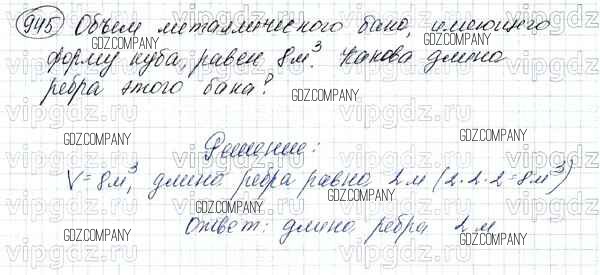 945 Объем металлического бака, имеющего
форму куба, равен 8м³. Какова длина
ребра этого бака?
Решение:
V = 8м³, длина ребра равна 2м (2·2·2=8м³)
Ответ: длина ребра 2м
GDZ.COMPANY
vipgdz.com